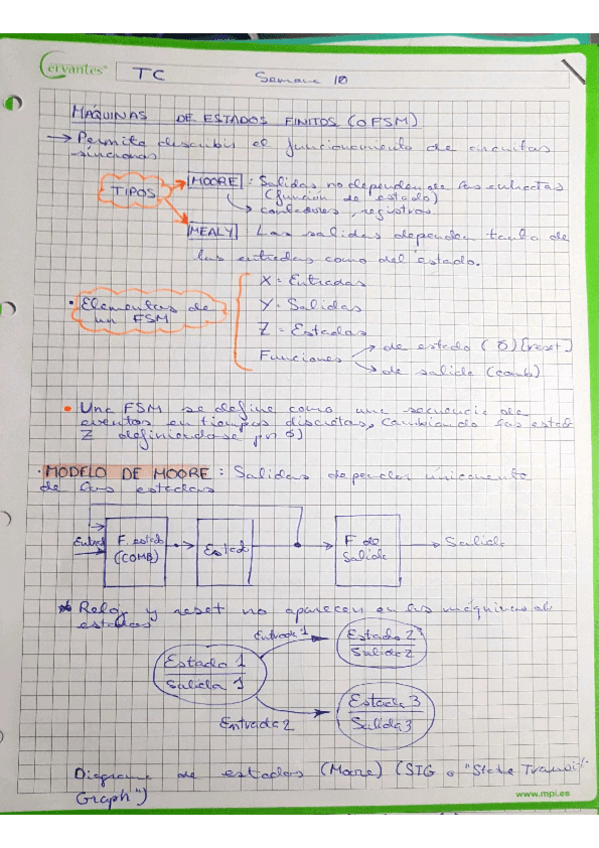 Cervantes
TC Semana 10
MÁQUINAS DE ESTADOS FINITOS (o FSM)
→ Permite describir el funcionamiento de circuitos
síncronos
TIPOS
MOORE: Salidas no dependen de las entradas
(función de estado)
→ contadores, registros
MEALY Las salidas dependen tanto de
las entradas como del estado.
• Elementos de
un FSM
X = Entradas
Y = Salidas
Z = Estados
Funciones
de estado (δ) [reset]
de salida (comb)
• Una FSM se define como una secuencia de
eventos en tiempos discretos, cambiando los estad
Z definiéndose por δ)
· MODELO DE MOORE: Salidas dependen únicamente
de los estados
Entrad
F. estado
(COMB)
Estad
F de
Salida
Salida
* Reloj y reset no aparecen en las máquinas de
estados
Estado 1
Salida 1
Entrada 1
Estado 2
Salida 2
Entrada 2
Estado 3
Salida 3
Diagrama de estados (Moore) (STG o "State Transit.
Graph")
www.mpi.es